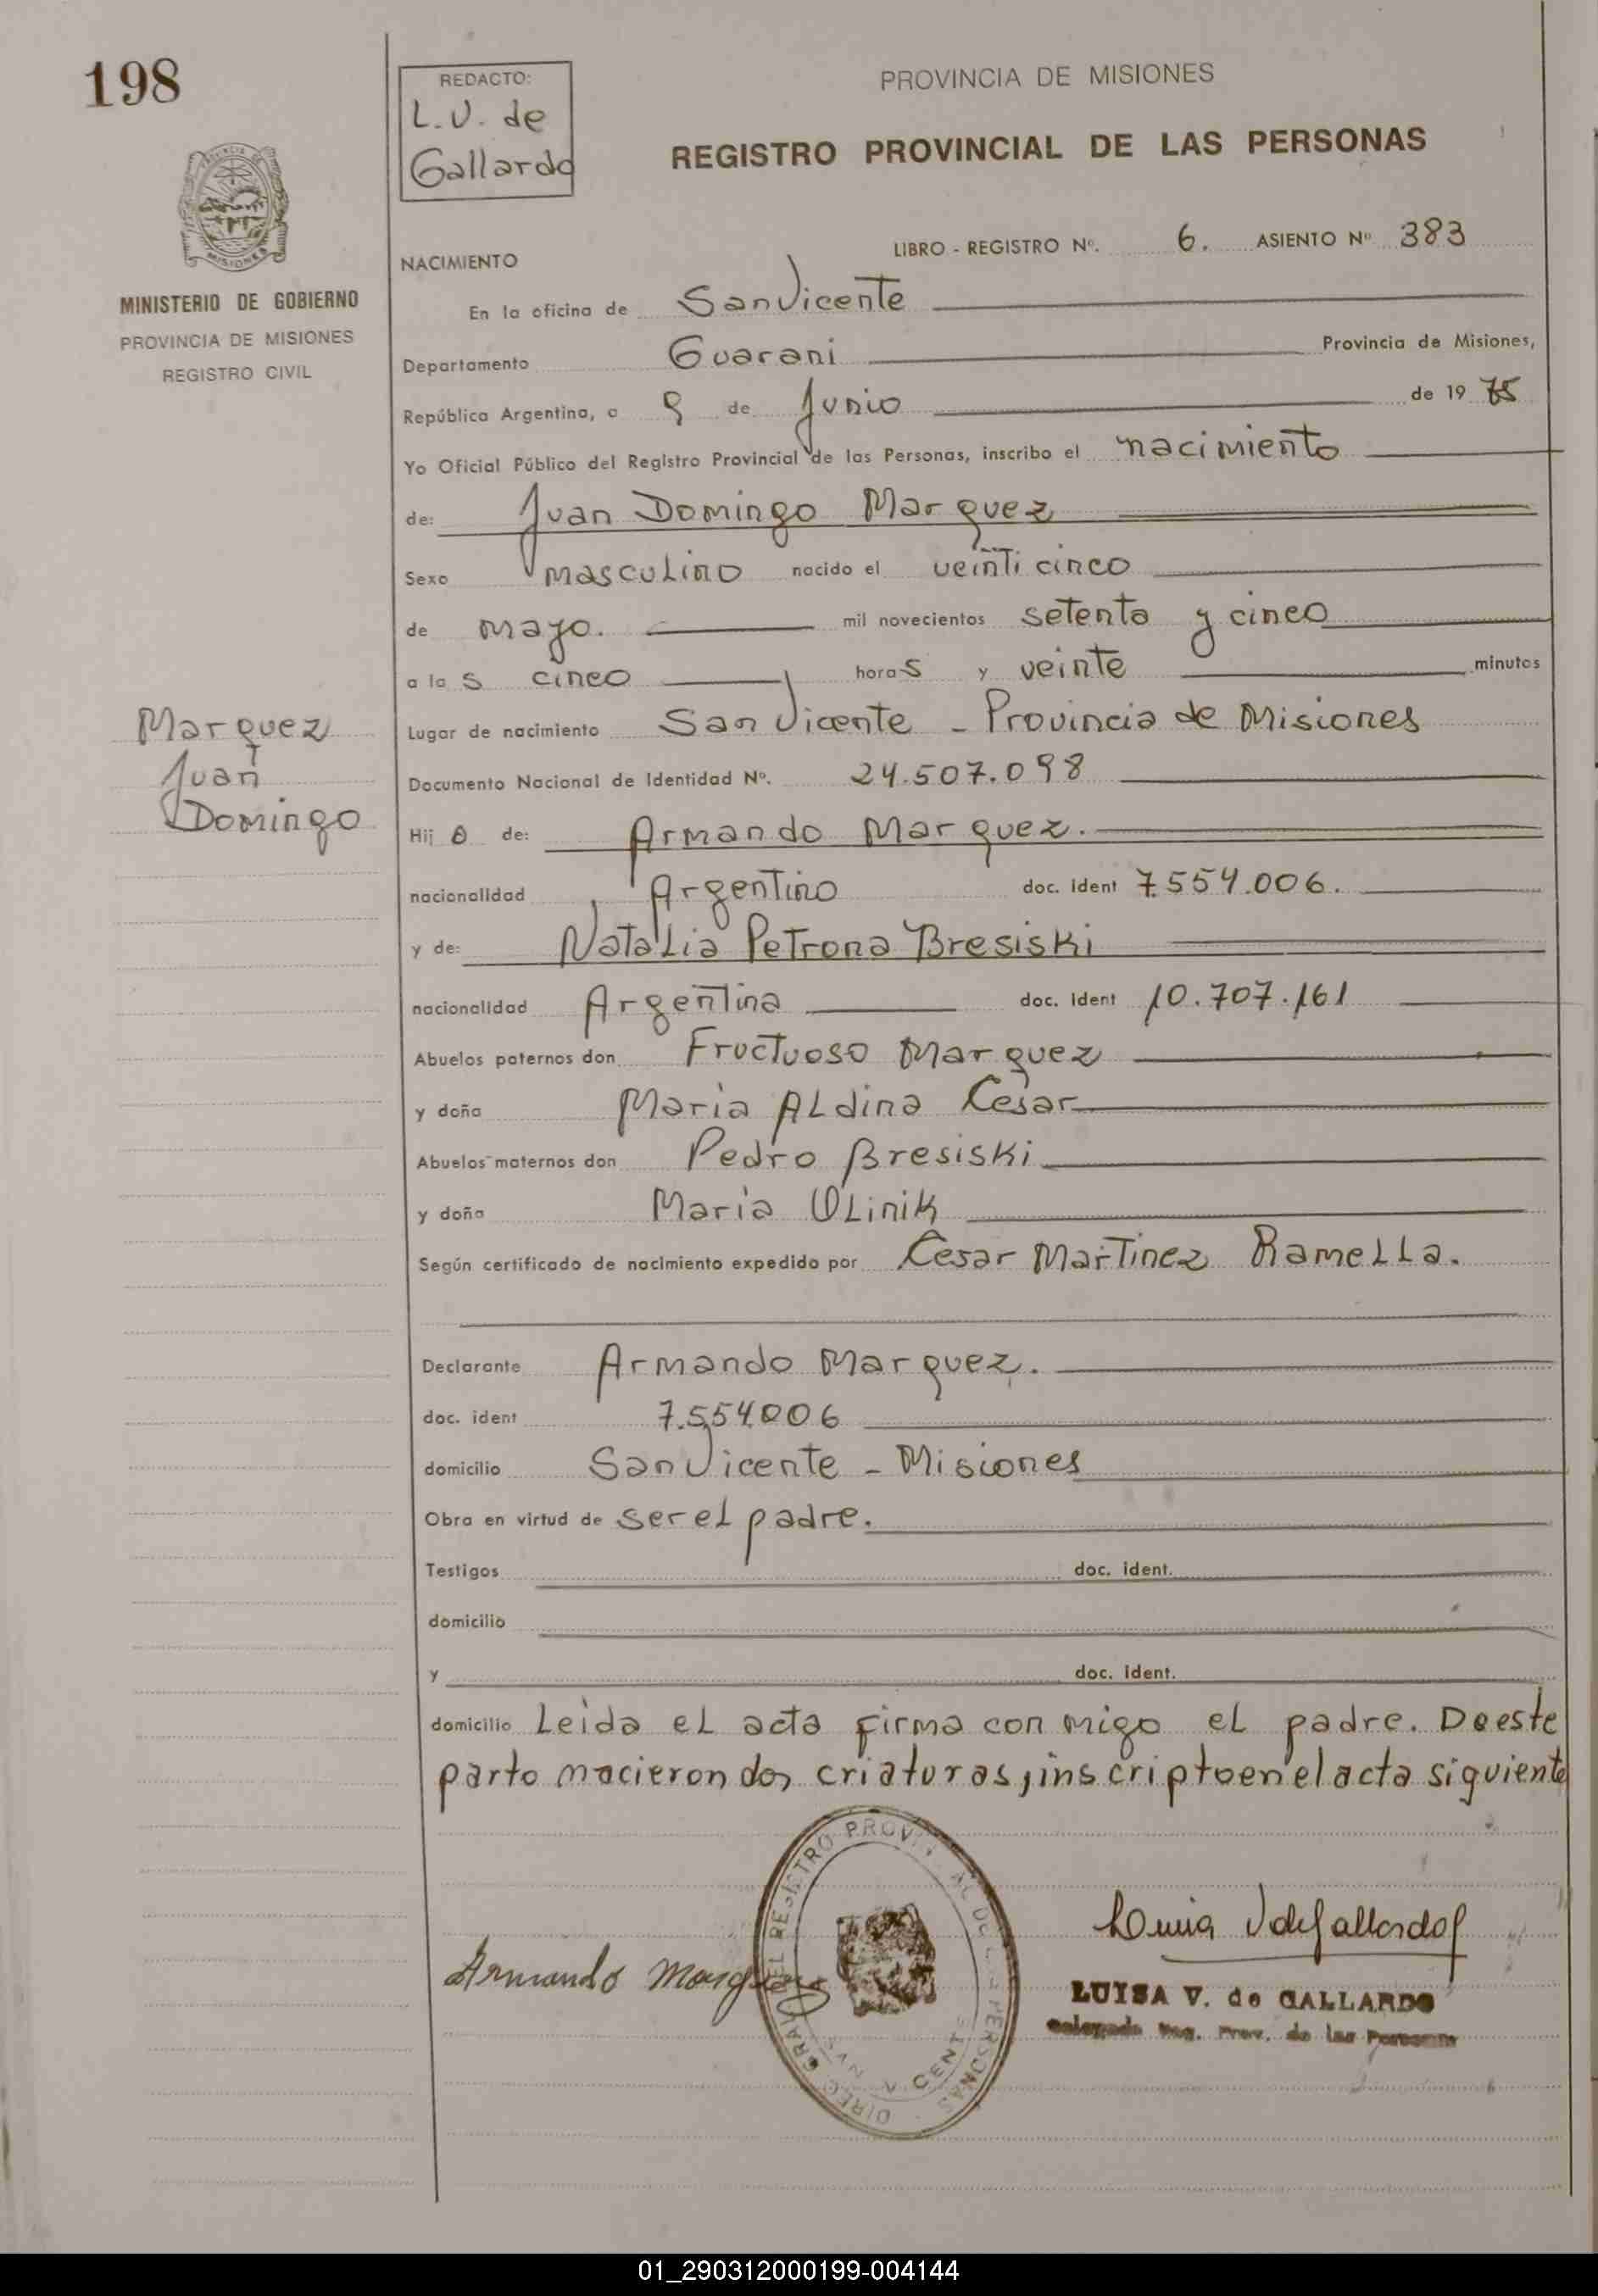 198
REDACTO:
L.V. de
Gallardo
PROVINCIA DE MISIONES
REGISTRO PROVINCIAL DE LAS PERSONAS
MISIONES
MINISTERIO DE GOBIERNO
PROVINCIA DE MISIONES
REGISTRO CIVIL
LIBRO - REGISTRO Nº. 6. ASIENTO Nº 383
NACIMIENTO
En la oficina de San Vicente
Departamento Guarani Provincia de Misiones,
República Argentina, a 9 de Junio de 19 75
Yo Oficial Público del Registro Provincial de las Personas, inscribo el nacimiento
de: Juan Domingo Marquez
Sexo masculino nacido el veinti cinco
de mayo. mil novecientos setenta y cinco
a la s cinco hora s y veinte minutos
Marquez
Juan
Domingo
Lugar de nacimiento San Vicente - Provincia de Misiones
Documento Nacional de Identidad Nº. 24.507.098
Hij o de: Armando Marquez.
nacionalidad Argentino doc. ident 7.554.006.
y de: Natalia Petrona Bresiski
nacionalidad Argentina doc. ident 10.707.161
Abuelos paternos don Fructuoso Marquez
y doña Maria Aldina Cesar
Abuelos maternos don Pedro Bresiski
y doña Maria Olinik
Según certificado de nacimiento expedido por Cesar Martinez Ramella.
Declarante Armando Marquez.
doc. ident 7.554.006
domicilio San Vicente - Misiones
Obra en virtud de ser el padre.
Testigos doc. ident.
domicilio
y doc. ident.
domicilio Leida el acta firma con migo el padre. De este
parto nacieron dos criaturas, inscripto en el acta siguiente
Armando Marquez
LUISA V. de GALLARDO
Reg. Prov. de las Personas
01_290312000199-004144